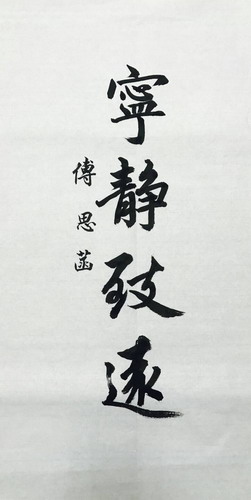 寧静致遠
傅思菡